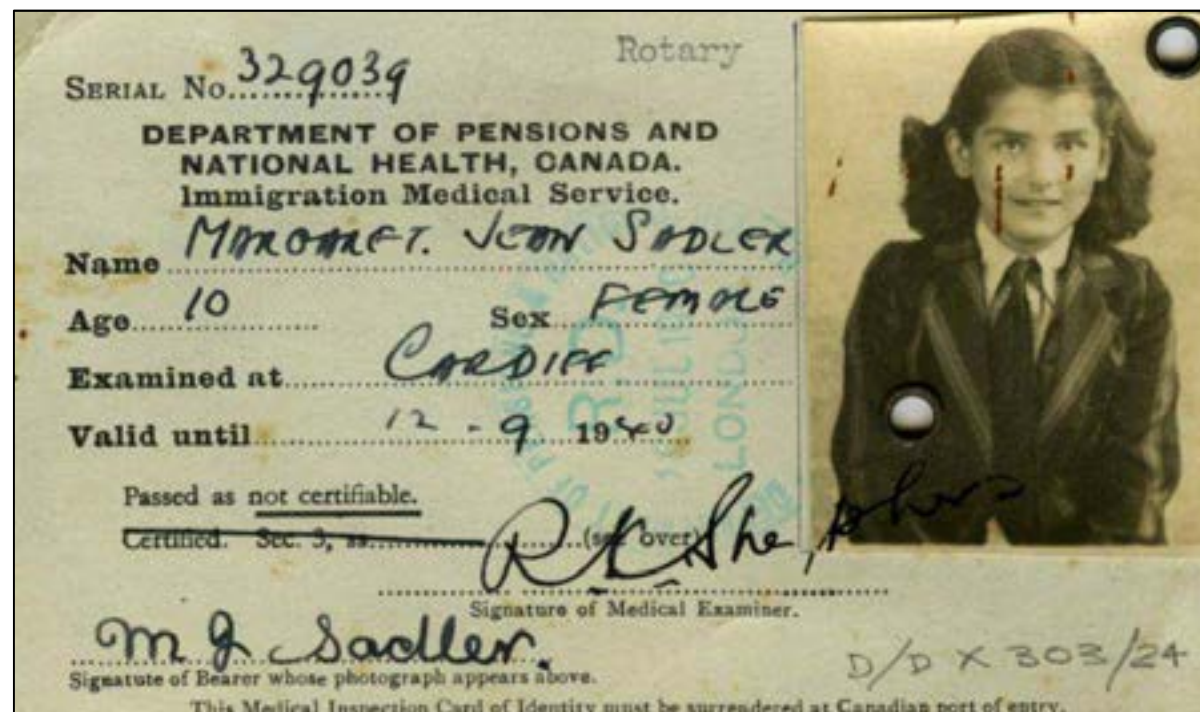 Rotary
SERIAL No. 329039
DEPARTMENT OF PENSIONS AND
NATIONAL HEALTH, CANADA.
Immigration Medical Service.
Name MARGARET. JEAN SADLER
Age 10 Sex FEMALE
Examined at CARDIFF
Valid until 12 - 9 1940
Passed as not certifiable.
Certified. Sec. 3, as (see over)
Signature of Medical Examiner.
M J Sadler.
Signature of Bearer whose photograph appears above.
D/D X 303/24
This Medical Inspection Card of Identity must be surrendered at Canadian port of entry.